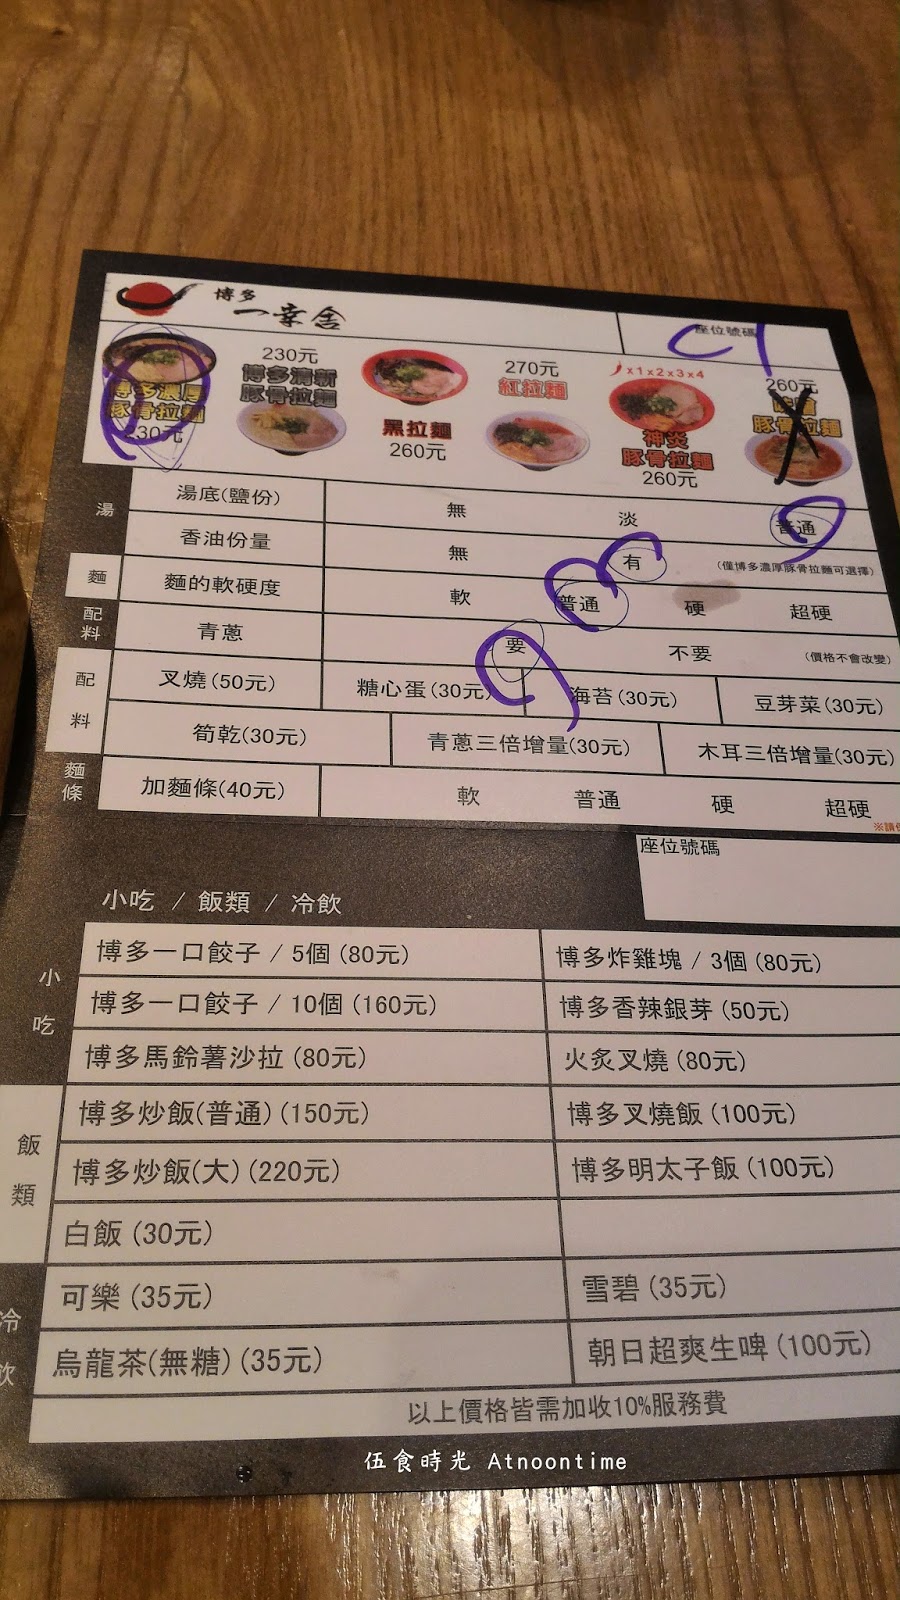 博多
一幸舍
座位號碼
C1
博多濃厚
豚骨拉麵
230元
230元
博多清新
豚骨拉麵
黑拉麵
260元
270元
紅拉麵
x1x2x3x4
神炎
豚骨拉麵
260元
260元
味噌
豚骨拉麵
湯
湯底(鹽份) 無 淡 普通
香油份量 無 有 (僅博多濃厚豚骨拉麵可選擇)
麵
麵的軟硬度 軟 普通 硬 超硬
配料
青蔥 要 不要 (價格不會改變)
配料
叉燒(50元) 糖心蛋(30元) 海苔(30元) 豆芽菜(30元)
筍乾(30元) 青蔥三倍增量(30元) 木耳三倍增量(30元)
麵條
加麵條(40元) 軟 普通 硬 超硬
座位號碼
小吃 / 飯類 / 冷飲
小吃
博多一口餃子 / 5個 (80元) 博多炸雞塊 / 3個 (80元)
博多一口餃子 / 10個 (160元) 博多香辣銀芽 (50元)
博多馬鈴薯沙拉 (80元) 火炙叉燒 (80元)
飯類
博多炒飯(普通) (150元) 博多叉燒飯 (100元)
博多炒飯(大) (220元) 博多明太子飯 (100元)
白飯 (30元)
冷飲
可樂 (35元) 雪碧 (35元)
烏龍茶(無糖) (35元) 朝日超爽生啤 (100元)
以上價格皆需加收10%服務費
伍食時光 Atnoontime